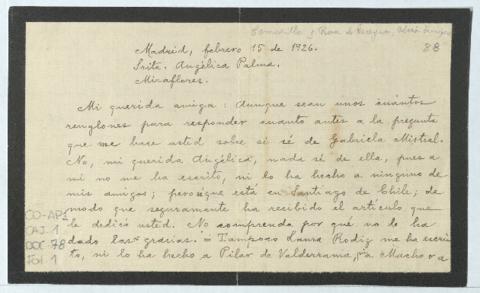 88
Madrid, febrero 15 de 1926.
Srita. Angélica Palma.
Miraflores.
Mi querida amiga: Aunque sean unos cuántos
renglones para responder cuanto antes a la pregunta
que me hace usted sobre si sé de Gabriela Mistral.
No, mi querida Angélica, nada sé de ella, pues a
mi no me ha escrito, ni lo ha hecho a ninguno de
mis amigos; pero sé que está en Santiago de Chile; de
modo que seguramente ha recibido el artículo que
le dedicó usted. No comprendo por qué no le ha
dado las gracias. Tampoco Laura Rodig me ha escri
to, ni lo ha hecho a Pilar de Valderrama, ra Mucho a
CO-AP1
CAJ. 1
DOC. 78
FOL. 1